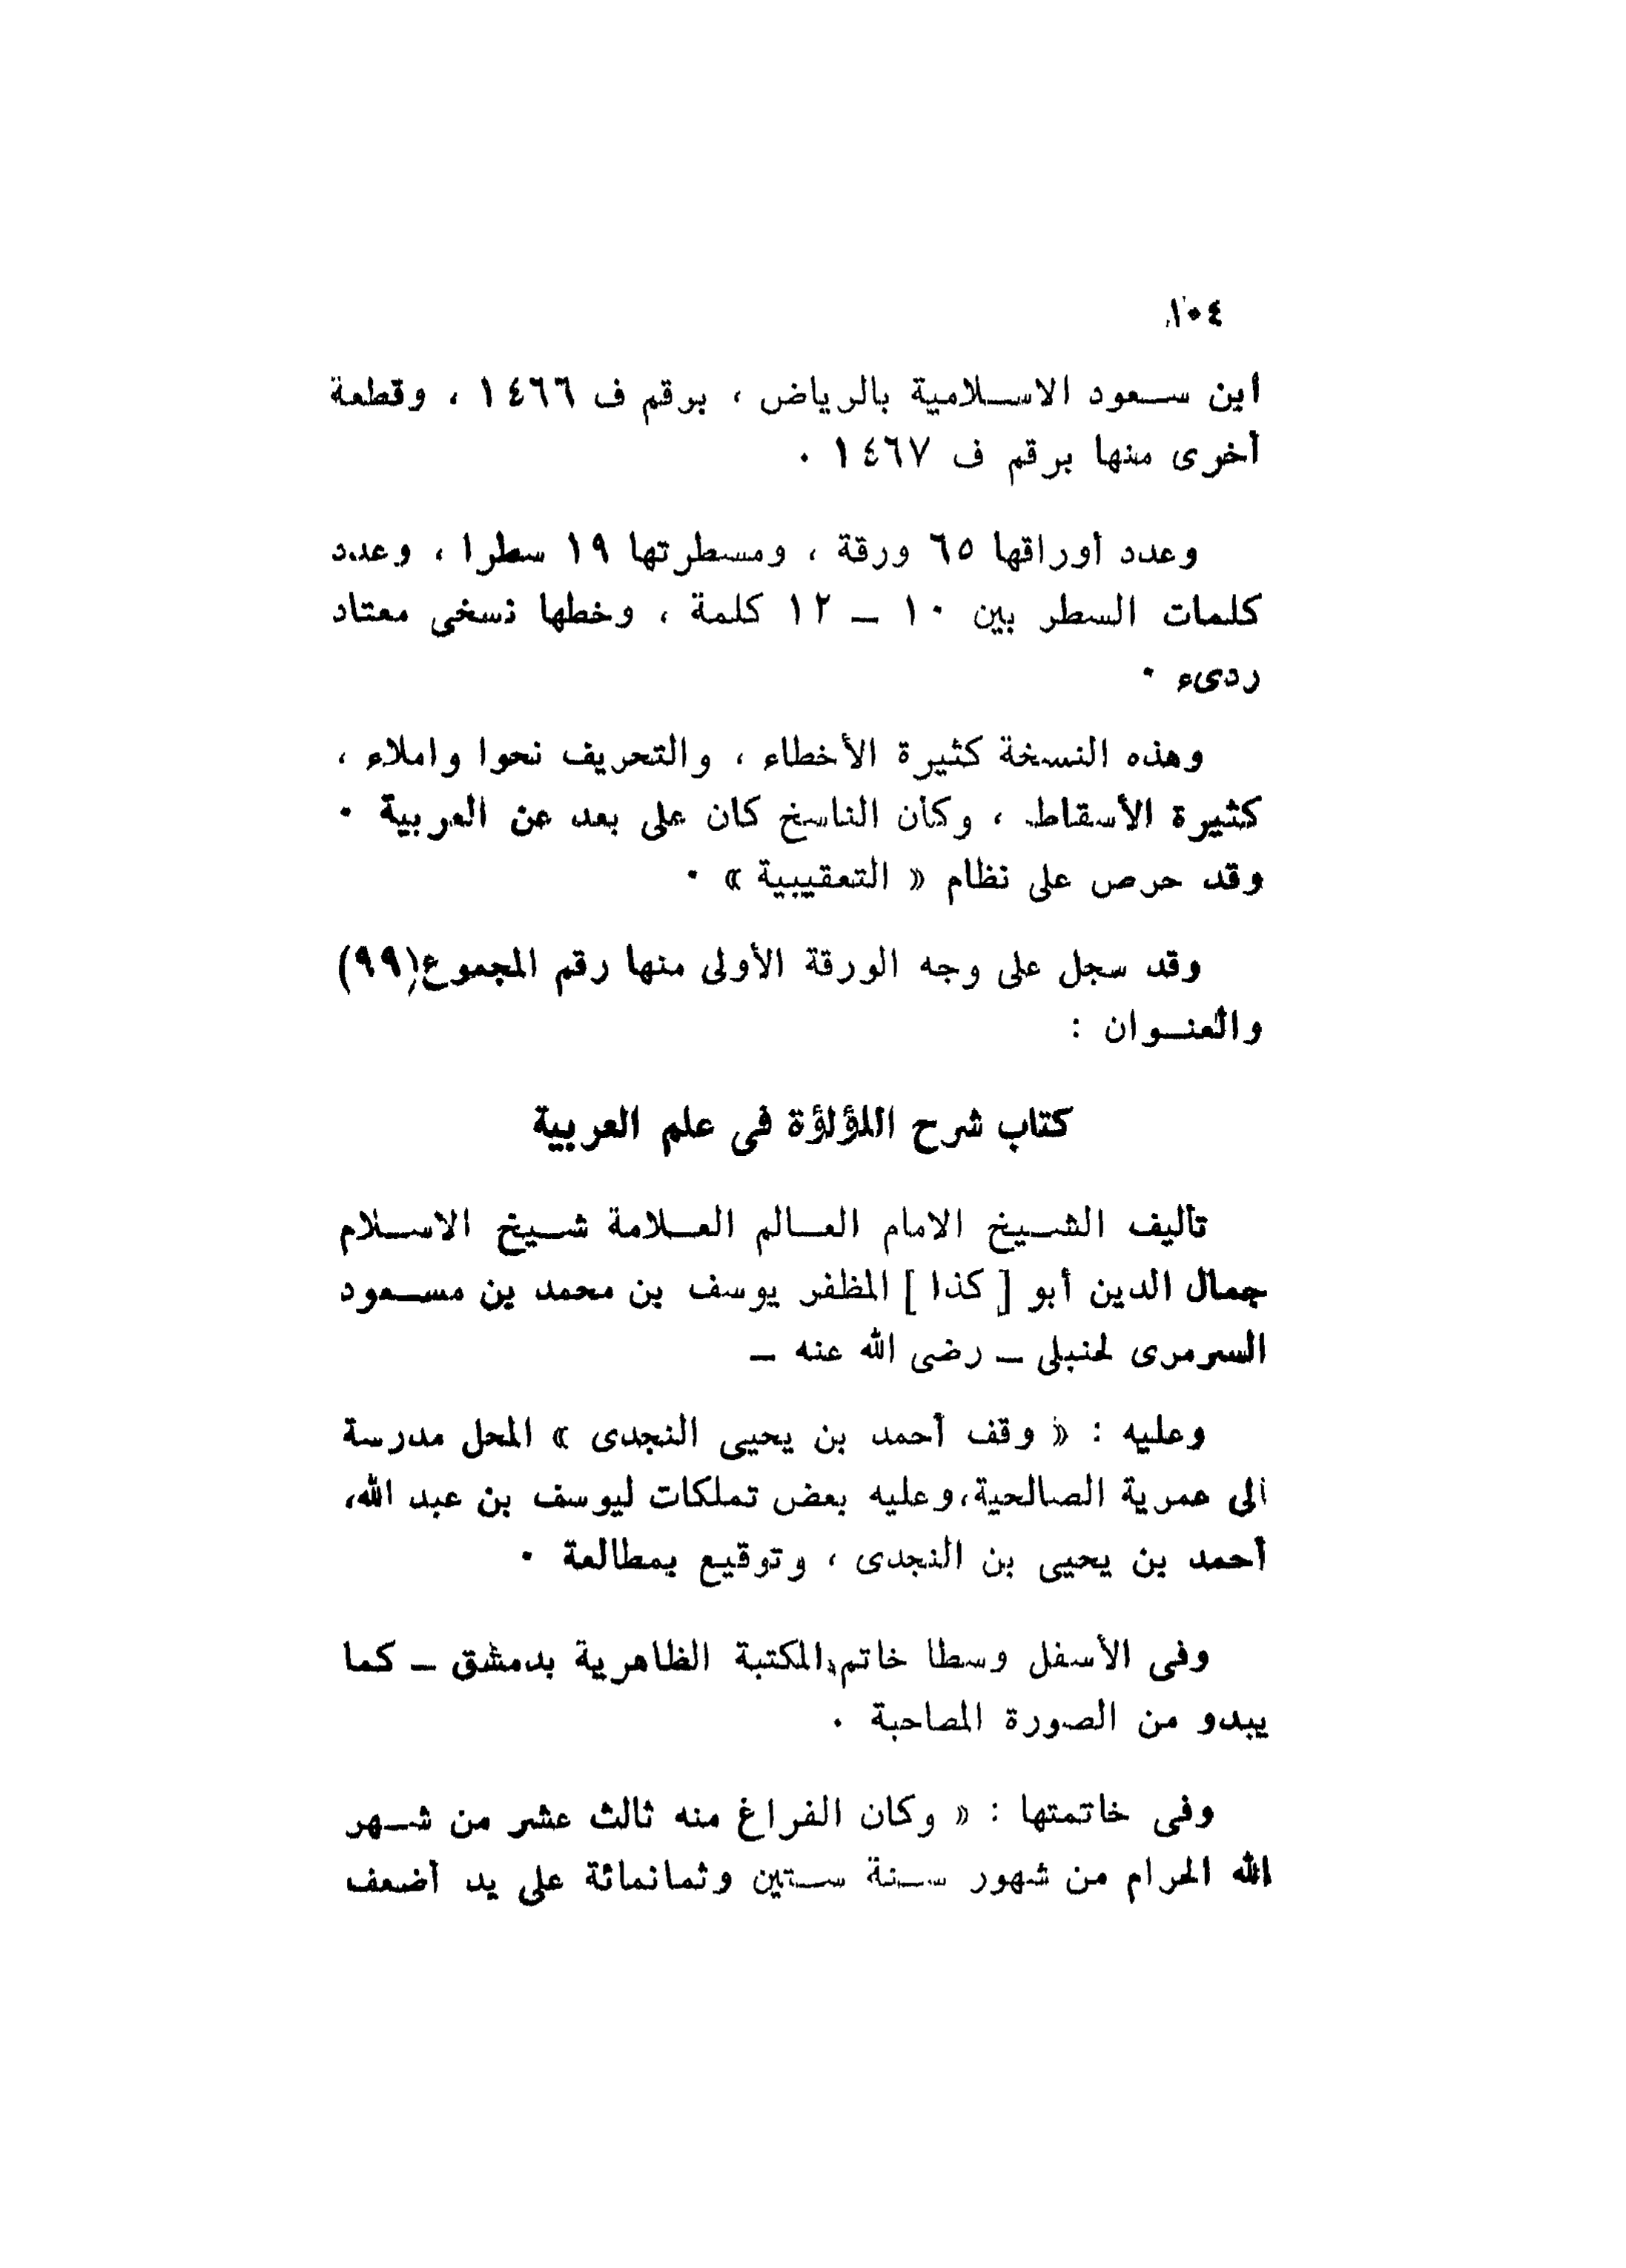 ١٠٤
ابن سعود الاسلامية بالرياض ، برقم ف ١٤٦٦ ، وقطعة
أخرى منها برقم ف ١٤٦٧ ٠
وعدد أوراقها ٦٥ ورقة ، ومسطرتها ١٩ سطرا ، وعدد
كلمات السطر بين ١٠ ــ ١٢ كلمة ، وخطها نسخى معتاد
ردىء ٠
وهذه النسخة كثيرة الأخطاء ، والتحريف نحوا واملاء ،
كثيرة الأسقاط ، وكأن الناسخ كان على بعد عن العربية ٠
وقد حرص على نظام « التعقيبية » ٠
وقد سجل على وجه الورقة الأولى منها رقم المجموع(٩٩)
والعنوان :
كتاب شرح اللؤلؤة فى علم العربية
تأليف الشيخ الامام العالم العلامة شيخ الاسلام
جمال الدين أبو [ كذا ] المظفر يوسف بن محمد بن مسعود
السرمرى لحنبلى ــ رضى الله عنه ــ
وعليه : « وقف أحمد بن يحيى النجدى » المحل مدرسة
الى عمرية الصالحية،وعليه بعض تملكات ليوسف بن عبد الله،
أحمد بن يحيى بن النجدى ، وتوقيع بمطالعة ٠
وفى الأسفل وسطا خاتم المكتبة الظاهرية بدمشق ــ كما
يبدو من الصورة المصاحبة ٠
وفى خاتمتها : « وكان الفراغ منه ثالث عشر من شهر
الله الحرام من شهور سنة ستين وثمانمائة على يد أضعف